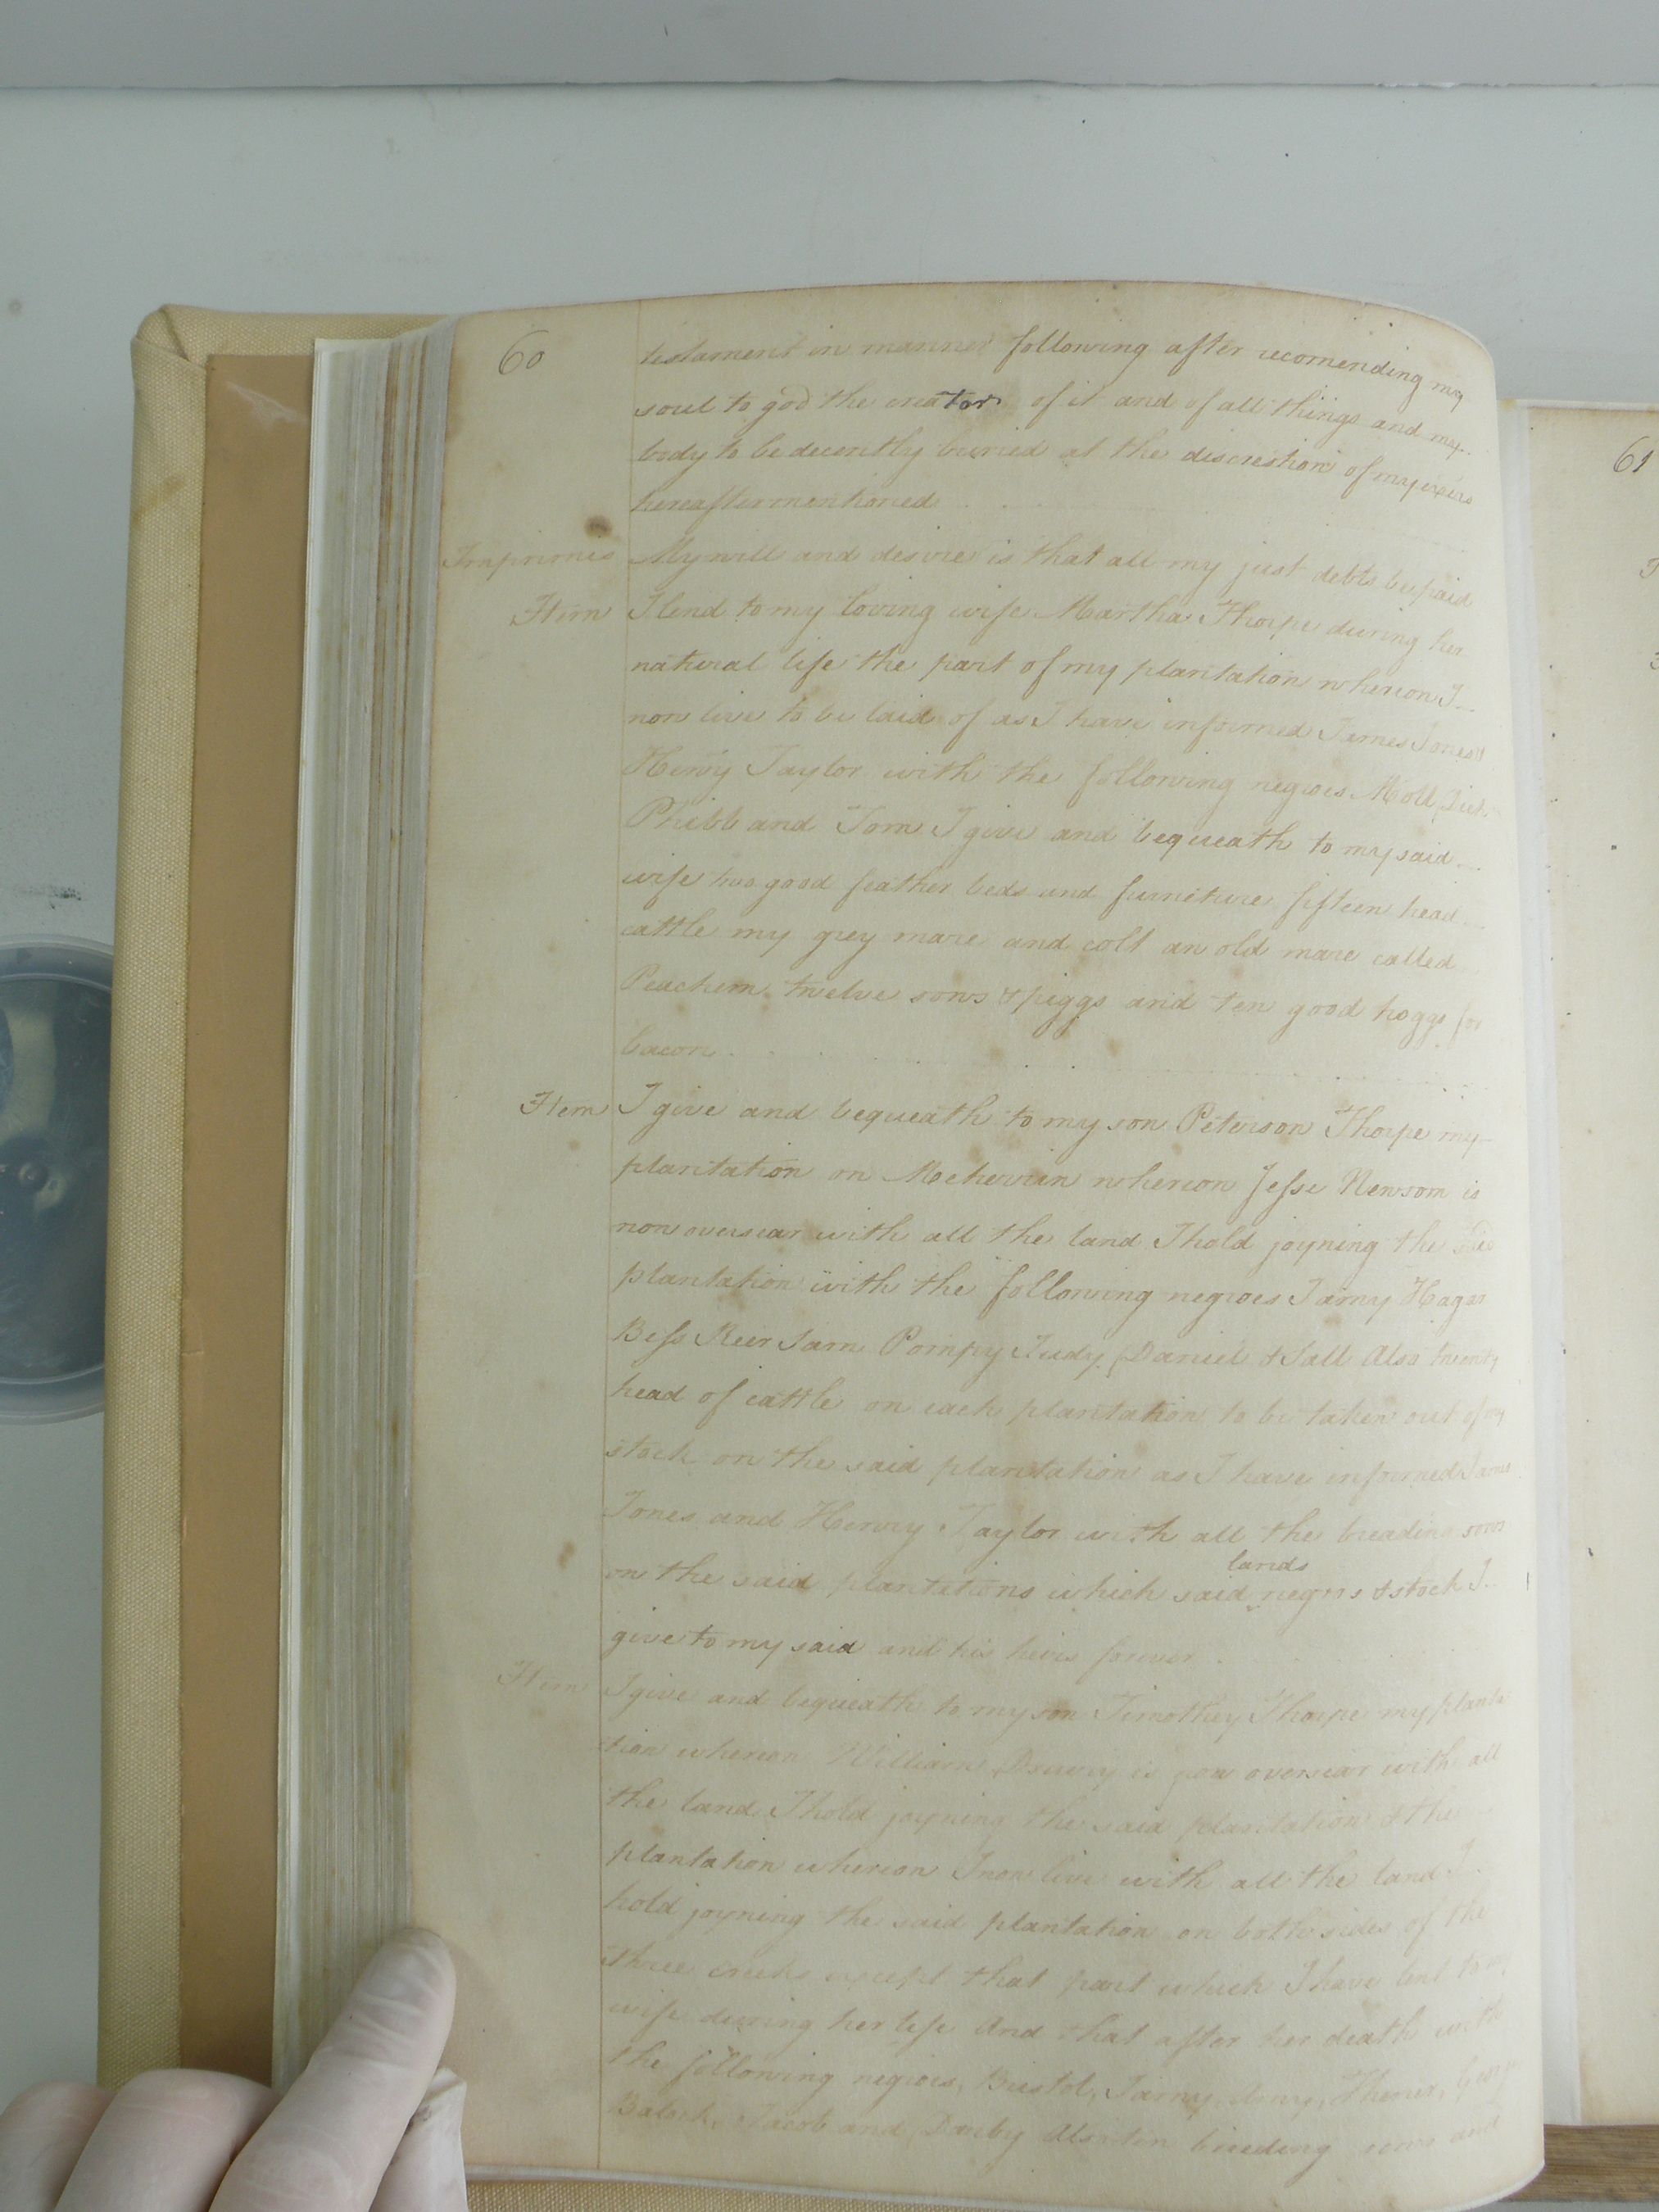 60
testament in manner following after recomending my
soul to god the creator of it and of all things and my
body to be decently buried at the discrestion of my exers
hereafter mentioned
Impriomis My will and desire is that all my just debts be paid
Item I lend to my loving wife Martha Thorpe during her
natural life the part of my plantation whereon I
now live to be laid of as I have informed James Jones &
Henry Taylor with the following negroes Moll Dick
Phibb and Tom I give and bequeath to my said
wife two good feather beds and furniture fifteen head
cattle my grey mare and colt an old mare called
Peachem twelve sows & piggs and ten good hoggs for
bacon
Item I give and bequeath to my son Peterson Thorpe my
plantation on Meherrin whereon Jesse Newsom is
now oversear with all the land I hold joyning the
plantation with the following negroes Jamy Hagar
Bess Peer Sam Pompy Judy Daniel & Sall Also twenty
head of cattle on each plantation to be taken out of my
stock on the said plantation as I have informed James
Jones and Henry Taylor with all the breading sows
lands
on the said plantations which said negros & stock I
give to my said and his heirs forever
Item I give and bequeath to my son Timothey Thorpe my planta
tion whereon William Drewry is now oversear with all
the land I hold joyning the said plantation & the
plantation whereon I now live with all the land I
hold joyning the said plantation on both sides of the
three creeks except that part which I have lent to my
wife during her life And that after her death with
the following negroes, Bristol, Jamy, Amy,
Jacob and Darby Also ten breeding sows and
61